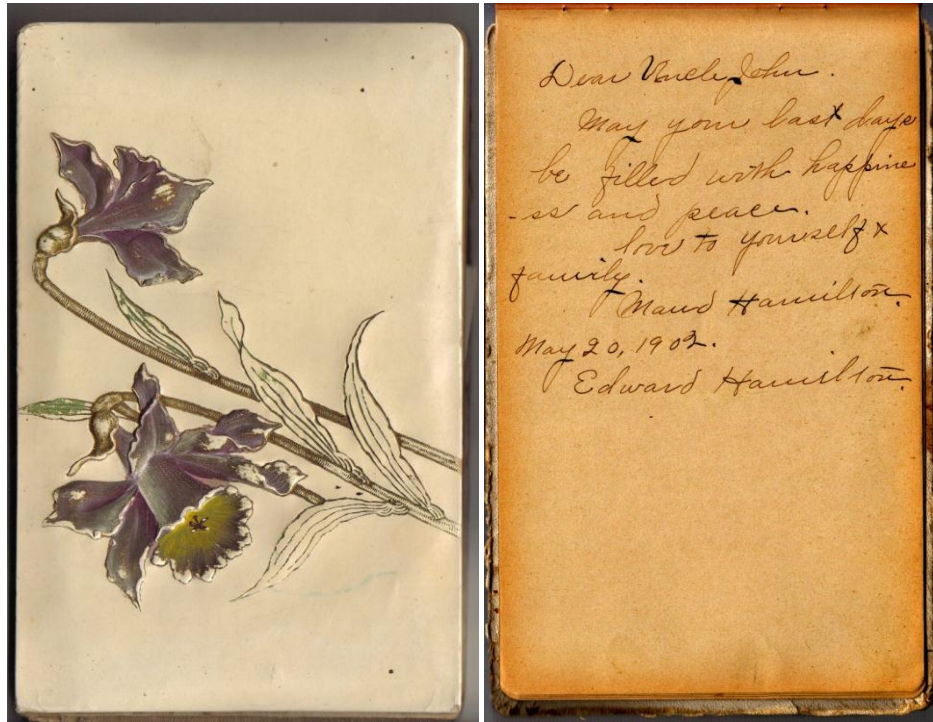 Dear Uncle John.
May your last days
be filled with happine
-ss and peace.
love to yourself &
family.
Maud Hamilton.
May 20, 1902.
Edward Hamilton.